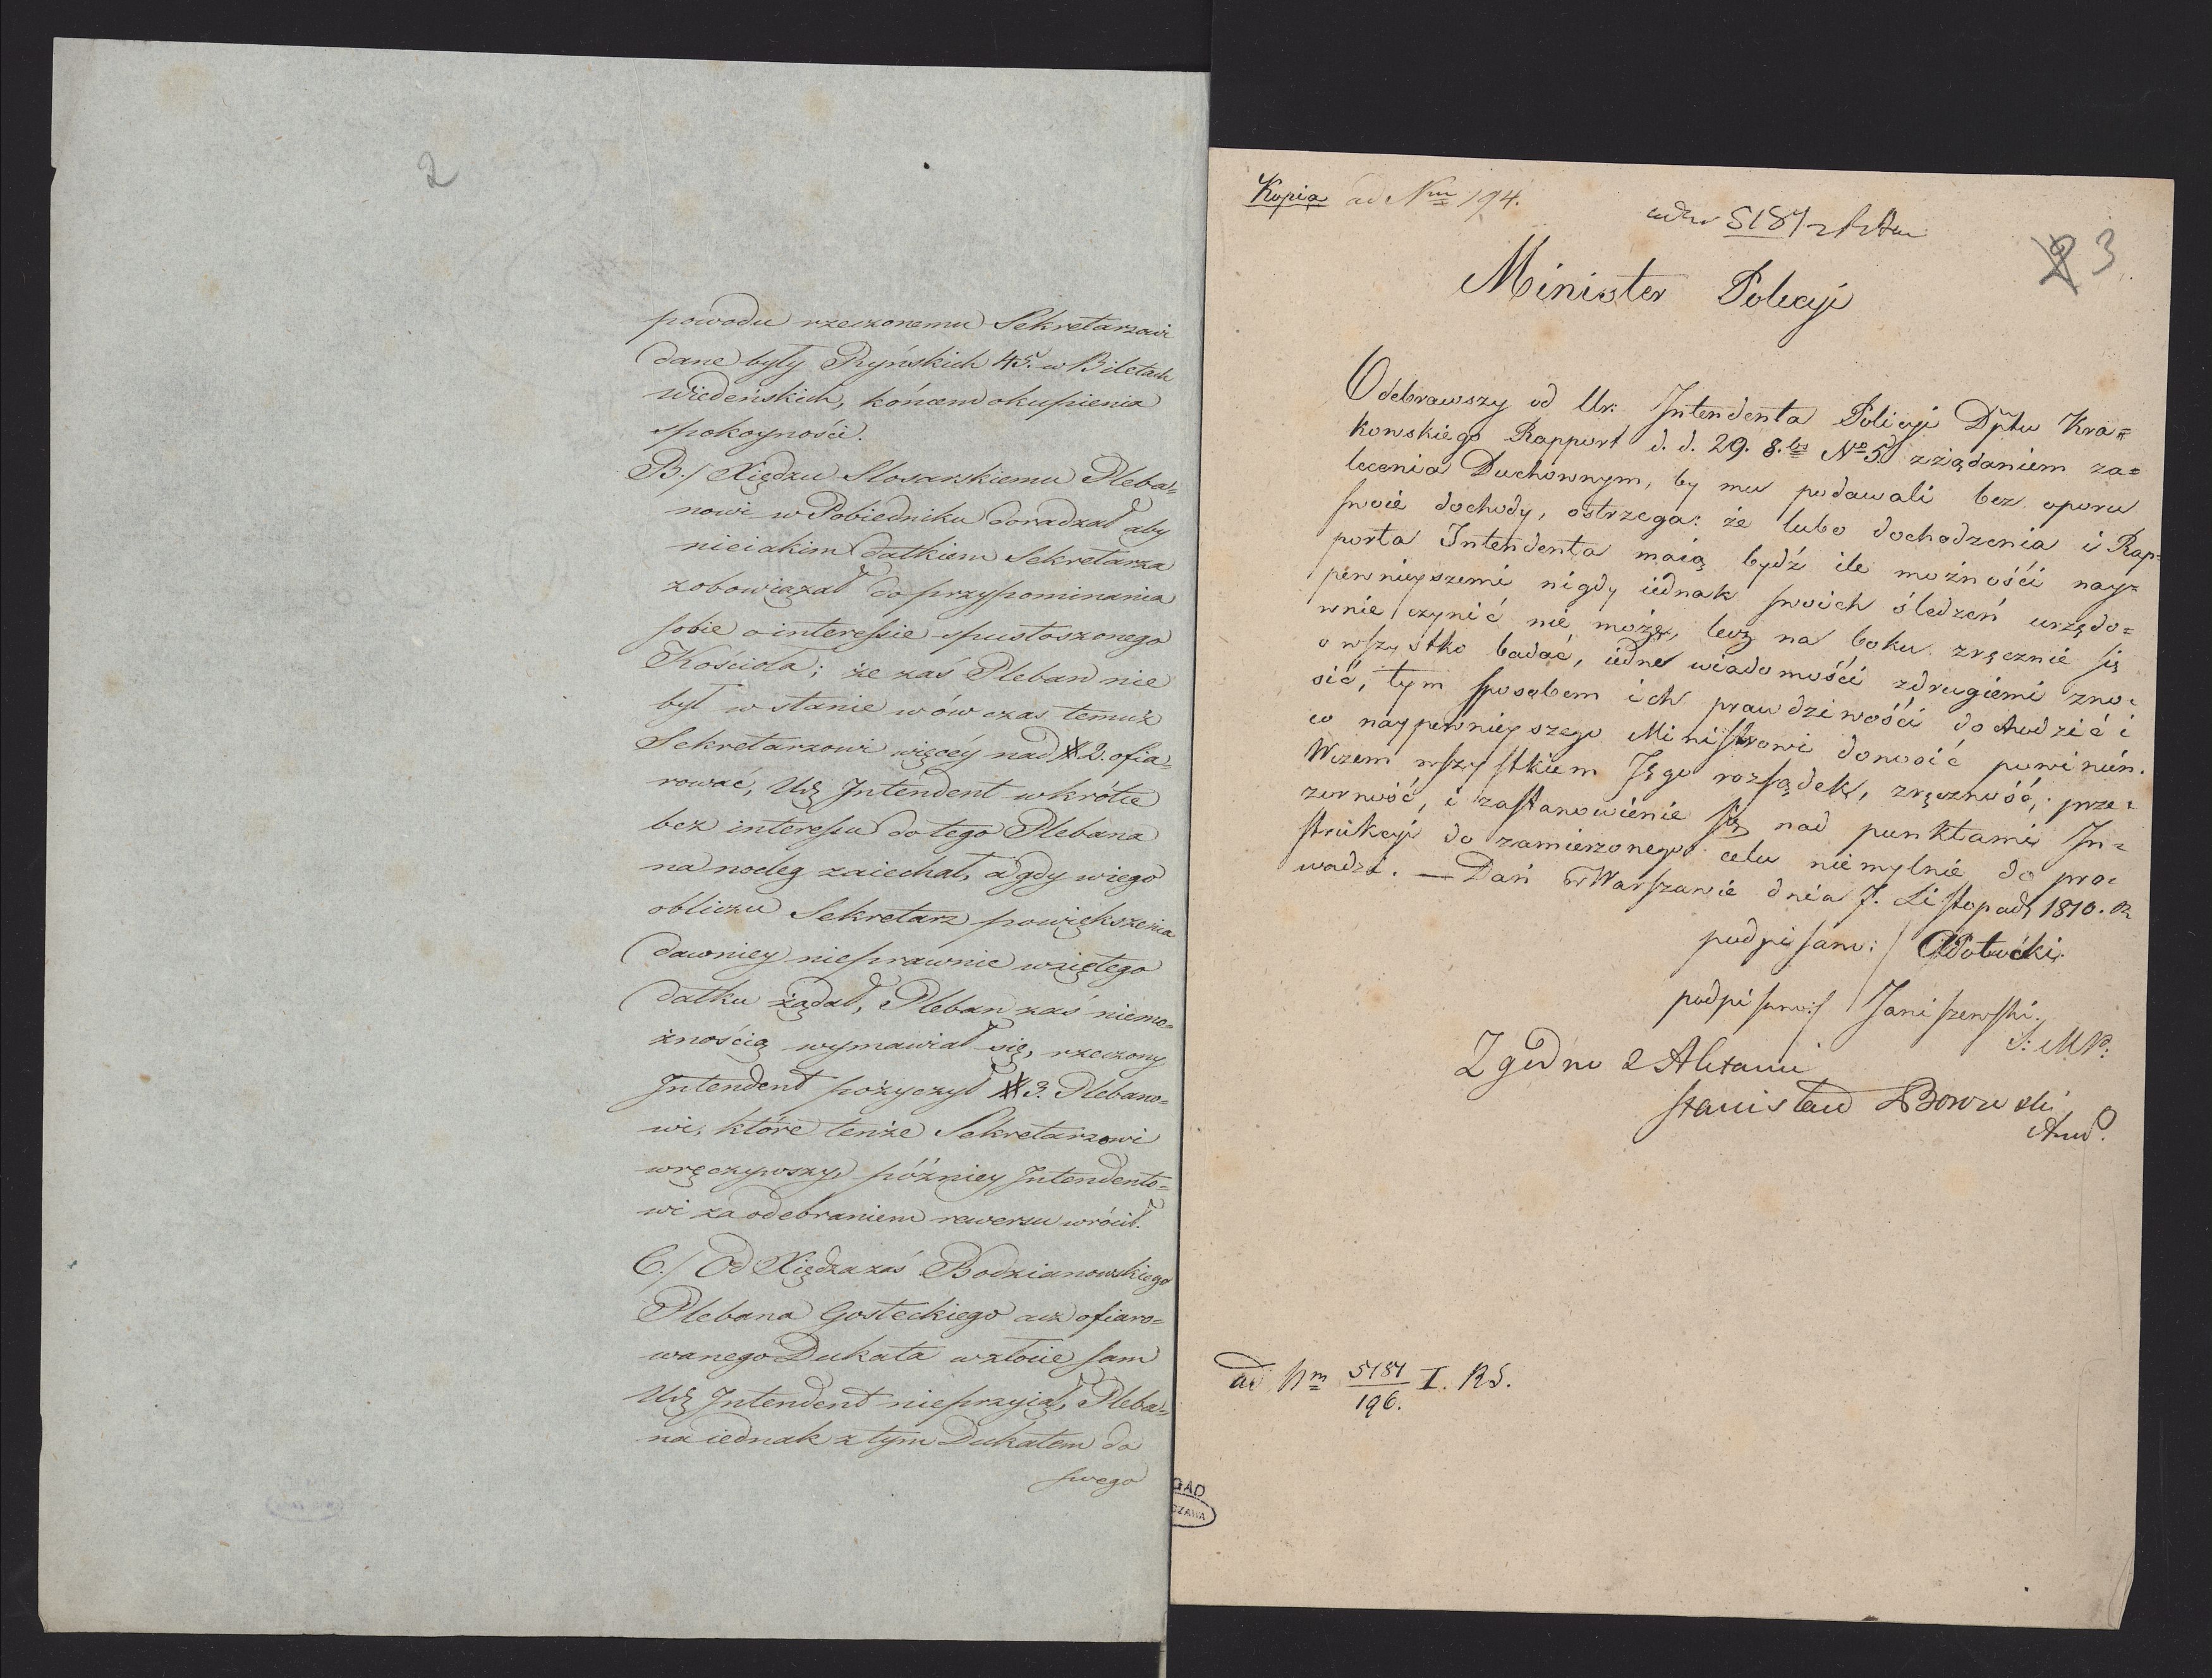 2
powodu rzeczonemu Sekretarzowi
dane były Ryńskich 45. w Biletach
Wiedeńskich, końcem okupienia
spokoyności.
B./ Xiędzu Slosarskiemu Pleba=
nowi w Pobiedniku doradzał aby
nieiakim datkiem Sekretarza
zobowiązał do przypominania
sobie o interessie spustoszonego
Kościoła; że zaś Pleban nie
był w stanie wówczas temuż
Sekretarzowi więcéy nad # 2. ofia=
rować, Ur: Intendent wkrótce
bez interessu do tego Plebana
na nocleg zaiechał, a gdy wiego
obliczu Sekretarz powiększenia
dawniey nieprawnie wziętego
datku żądał, Pleban zaś niemo=
żnością wymawiał się, rzeczony
Intendent pożyczył # 3. Plebano=
wi, które tenże Sekretarzowi
wręczywszy, późniey Intendento=
wi za odebraniem rewersu wrócił.
C./ Od Xiędza zaś Bodzianowskiego
Plebana Gosteckiego acz ofiaro=
wanego Dukata w złocie sam
Ur: Intendent nieprzyiął, Pleba=
na iednak z tym Dukatem do
swego
Kopia ad Nm 194.
5187
2 3
Minister Policyi
Odebrawszy od Ur: Intendenta Policyi Dptu Kra=
kowskiego Rapport d. d. 29. 8.bs No 5 z żądaniem za=
lecenia Duchownym, by mu podawali bez oporu
swoie dochody, ostrzega: że lubo dochodzenia i Rap=
porta Intendenta maią bydź ile możności nay=
pewnieyszemi nigdy iednak swoich śledzeń urzędo=
wnie czynić nie może, lecz na boku zręcznie się
o wszystko badać, iedne wiadomości z drugiemi zno=
sić, tym sposobem ich prawdziwości dochodzić i
co naypewnieyszego Ministrowi donosić powinien.
Wtzem wszystkiem Jego rozsądek, zręczność, prze=
zorność, i zastanowienie się nad punktami In=
strukcyi do zamierzonego celu niemylnie do pro=
wadzi. — Dań w Warszawie dnia 7. Listopada 1810. R
podpisano: / Potocki.
podpisano: / Janiszewski.
S: M P:
Zgodno z Aktami
Stanisław Borowski
ad Nm 5181/196. I. RS.
GAD